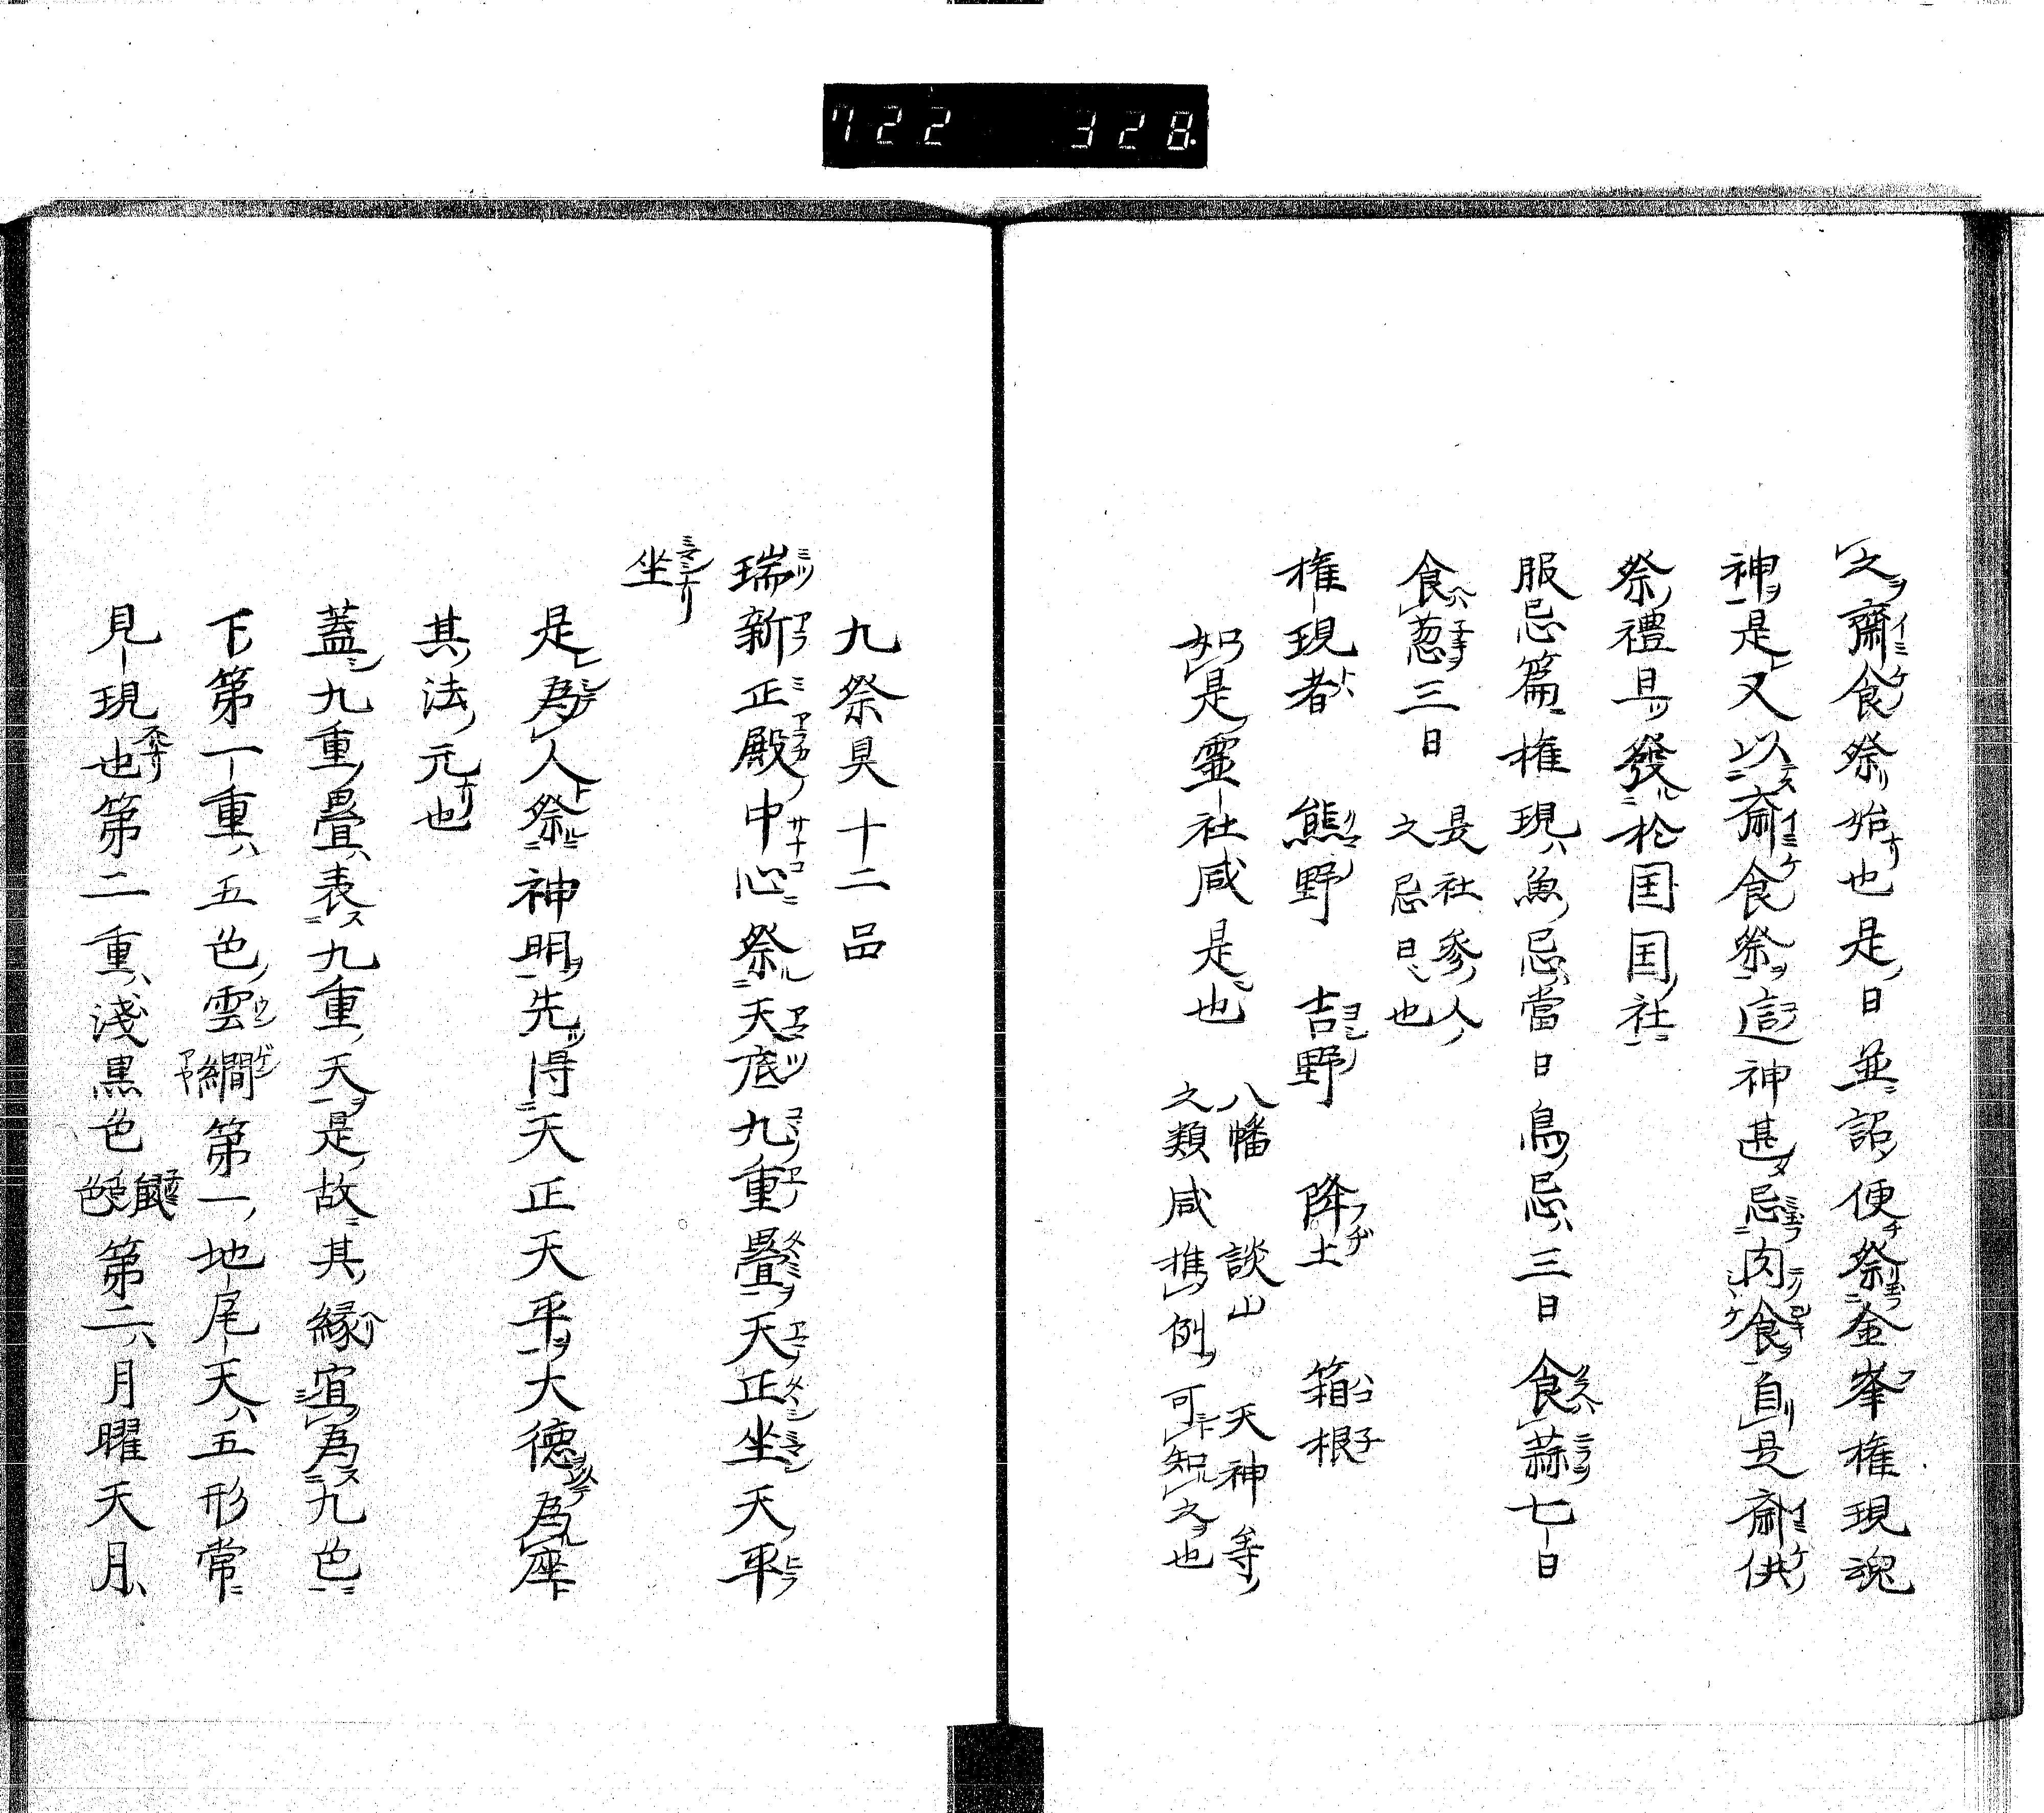 722 328.
之齋食祭始也是日並詔便祭金峯権現魂
神是又以齋食祭這神甚忌肉食自是齋供
祭禮具發於国国社
服忌篇権現魚忌當日鳥忌三日食蒜七日
食葱三日 是社參人
之忌日也
権現者 熊野 吉野 降土 箱根
如是霊社咸是也 八幡 談山 天神等
之類咸推例可知之也
九祭具十二品
瑞新正殿中心祭天底九重疊天正坐天平
坐
是為人祭神明先得天正天平大德為座
其法元也
蓋九重疊表九重天是故其縁宜為九色
下第一重五色雲繝第一地尾天五形常
見現也第二重淺黒色 第二月曜天月